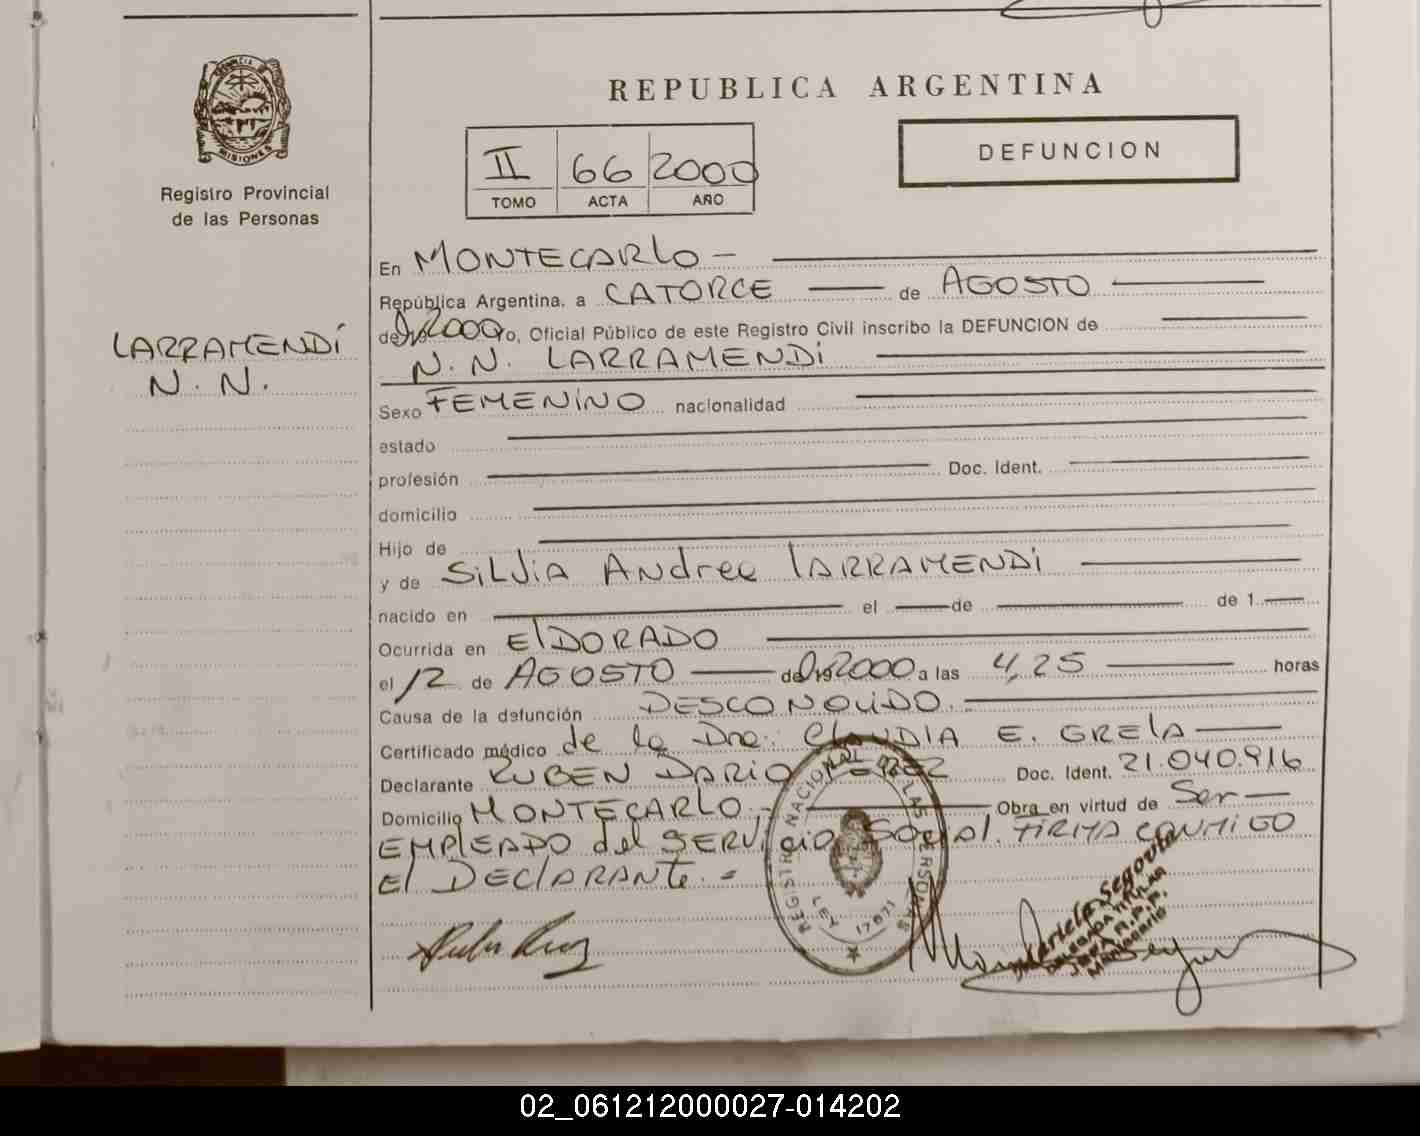 PROVINCIA DE
MISIONES
Registro Provincial
de las Personas
LARRAMENDÍ
N. N.
REPUBLICA ARGENTINA
II 66 2000
TOMO ACTA AÑO
DEFUNCION
En MONTECARLO -
República Argentina, a CATORCE de AGOSTO
de 2000 yo, Oficial Público de este Registro Civil inscribo la DEFUNCION de
N. N. LARRAMENDÍ
Sexo FEMENINO nacionalidad
estado
profesión Doc. Ident.
domicilio
Hijo de
y de SILVIA ANDREA LARRAMENDI
nacido en el de de 1
Ocurrida en ELDORADO
el 12 de AGOSTO de 2000 a las 4,25 horas
Causa de la defunción DESCONOCIDO.
Certificado médico de la Dra. CLAUDIA E. GRELA
Declarante RUBEN DARIO PEREZ Doc. Ident. 21.040.916
Domicilio MONTECARLO.- Obra en virtud de Ser
EMPLEADO del SERVICIO Social. FIRMA CONMIGO
El DECLARANTE. -
REGISTRO NACIONAL DE LAS PERSONAS
LEY 17671
Mariela Segovia
DELEGADA TITULAR
02_061212000027-014202